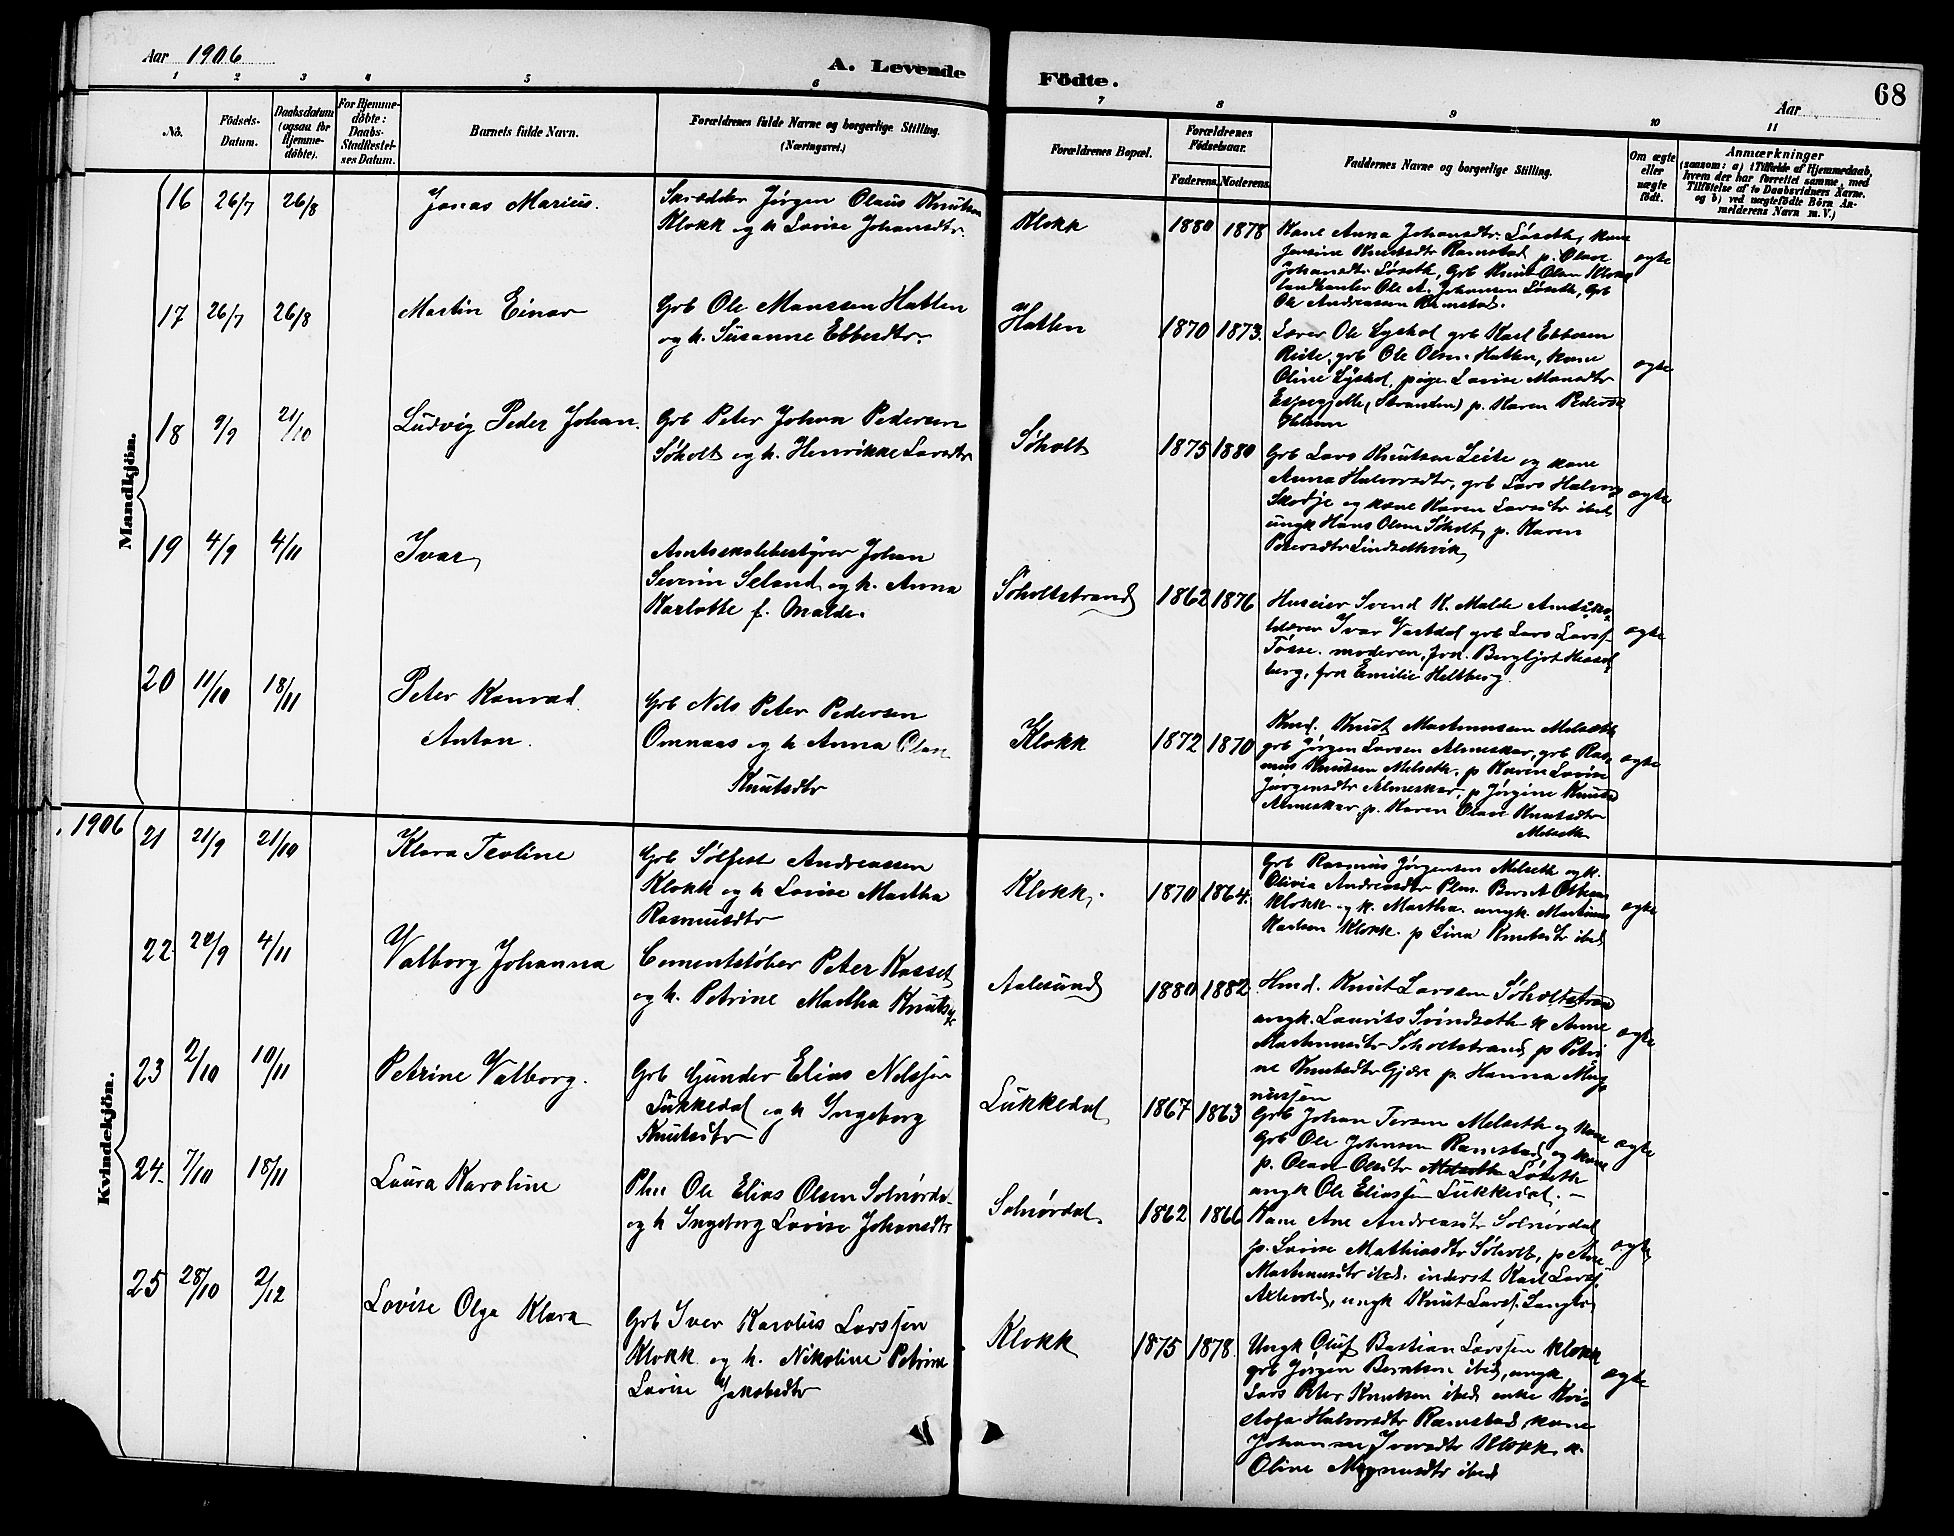 Aar 1906
A. Levende
Födte.
Aar
68
1 2 3 4 5 6 7 8 9 10 11
No.
Födsels-
Datum.
Daabsdatum
(ogsaa for
Hjemme-
döbte).
For Hjemme-
döbte:
Daabs-
Stadfæstel-
ses Datum.
Barnets fulde Navn.
Forældrenes fulde Navne og borgerlige Stilling.
(Næringsvei.)
Forældrenes Bopæl.
Forældrenes
Födselsaar.
Faderens. Moderens.
Faddernes Navne og borgerlige Stilling.
Om ægte
eller
uægte
födt.
Anmærkninger
(saasom: a) i Tilfælde af Hjemmedaab,
hvem der har forrettet samme, med
Tilföielse af to Daabsvidners Navne,
og b) ved uægtefödte Börn An-
melderens Navn m. V.)
Mandkjön.
16 26/7 26/8 Jonas Marius.
Skrædder Jørgen Olaus Knutsen
Klokk og h Lovise Johansdtr.
Klokk 1880 1878
Kone Anna Johansdtr. Løseth, kone
Jensine Knutsdtr Ramstad p. Olave
Johansdtr Løseth, Grb Knut Olsen Klokk
landhandler Ole A. Johansen Løseth, Grb
Ole Andreassen Ramstad.
ægte
17 26/7 26/8 Martin Einar
Grb Ole Monssen Hatlen
og h. Susanne Ebbesdtr.
Hatlen 1870 1873.
Lærer Ole Lyshol grb Karl Ebbesen
Reite, grb Ole Olsen Hatlen, kone
Oline Lyshol, pige Lovise Monsdtr
(Stranden) p. Karen Pedersd
ægte
18 9/9 21/10 Ludvig Peder Johan.
Grb Peter Johan Pedersen
Søholt og h. Henrikke Larsdtr
Søholt 1875 1880
Grb Lars Knutsen Leite og kone
Anna Halvorsdtr, grb Lars Halvors
Skodje og kone Karen Larsdtr ibd,
ungk Hans Olsen Søholt, p. Karen
Petersdtr Lindsethvik,
ægte
19 4/9 4/11 Ivar,
Amtsskolebestyrer Johan
Severin Seland, og h. Anna
Karlotte f. Malde.
Søholtstrand 1862 1876
Huseier Svend K. Malde Amtssko-
lelærer Ivar Vartdal grb Lars Larss.
Tøsse. moderen, frk. Bergljot Hessel
berg, frk Emilie Heltberg.
ægte
20 11/10 18/11 Peter Konrad.
Anton.
Grb Nils Peter Pedersen
Omnaas og h Anna Olave
Knutsdtr
Klokk 1872 1870
Knut Martinussen Melseth
grb Jørgen Larsen Almeskar, grb Ras-
mus Knutsen Melseth. p Karen Lovise
Jørgensdtr Almeskar, p Jørgine Knutsd
Almeskar, p. Karen Olave Knutsdtr
Melseth
ægte
1906
Kvindekjön.
21 21/9 21/10 Klara Teoline
Grb Sølfest Andreassen
Klokk og h Lovise Martha
Rasmusdtr
Klokk. 1870 1864.
Grb Rasmus Jørgensen Melseth og k.
Olivia Andreasdtr Plm. Bernt Ottesen
Klokk og k. Martha. ungk. Martinus
Karlsen Klokk. p Lina Knutsdtr ibd.
ægte
22 22/9 4/11 Valborg Johanna
Cementstøber Peter Kasset
og h. Petrine Martha Knutsd
Aalesund 1880 1882
Hmd. Knut Larssen Søholtstrand
ungk. Laurits Svindseth k Anne
Martinusdtr Søholtstrand, p Petri
ne Knutsdtr Gjære p. Hanna Mag-
nussen
ægte
23 2/10 10/11 Petrine Valborg.
Grb Gunder Elias Nilssen
Lukkedal og h Ingeborg
Knutsdtr
Lukkedal 1867 1863
Grb Johan Tersen Melseth og kone
Grb Ole Johnsen Ramstad og kone
p. Olave Olsdtr Løseth
ungk Ole Eliassen Lukkedal. –
ægte
24. 7/10 18/11 Laura Karoline
Plm Ole Elias Olsen Solnørdal
og h Ingeborg Lovise Johansdtr
Solnørdal. 1862 1866
Kone Ane Andreasdtr Solnørdal
p. Lovise Mathiasdtr Søholt, p Ane
Martinusdtr ibd. inderst Karl Larss.
ungk Knut Larss.
ægte
25 28/10 2/12 Lovise Olga Klara
Grb Iver Karolius Larssen
Klokk og h. Nikoline Petrine
Lovise Jakobsdtr
Klokk 1875 1878.
Ungk Oluf Bastian Larssen Klokk
grb Jørgen Berntsen ibd, ungk
Lars Peter Knutsen ibd enke Kri-
stofa Halvorsdtr Ramstad, kone
Johanne Iversdtr Klokk, k.
Oline Magnusdtr ibd
ægte